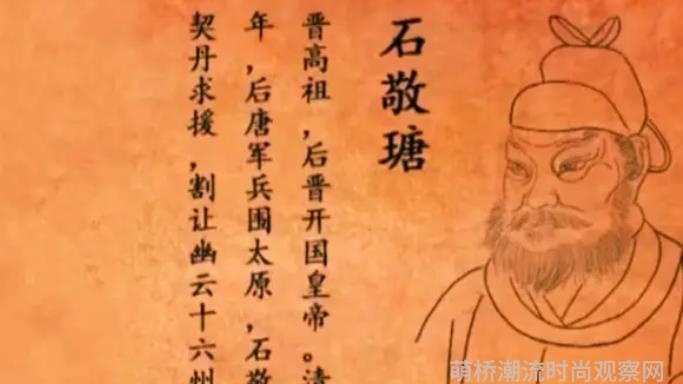 石敬瑭
晋高祖，后晋开国皇帝。清
年，后唐军兵围太原，石敬
契丹求援，割让幽云十六州
萌桥潮流时尚观察网